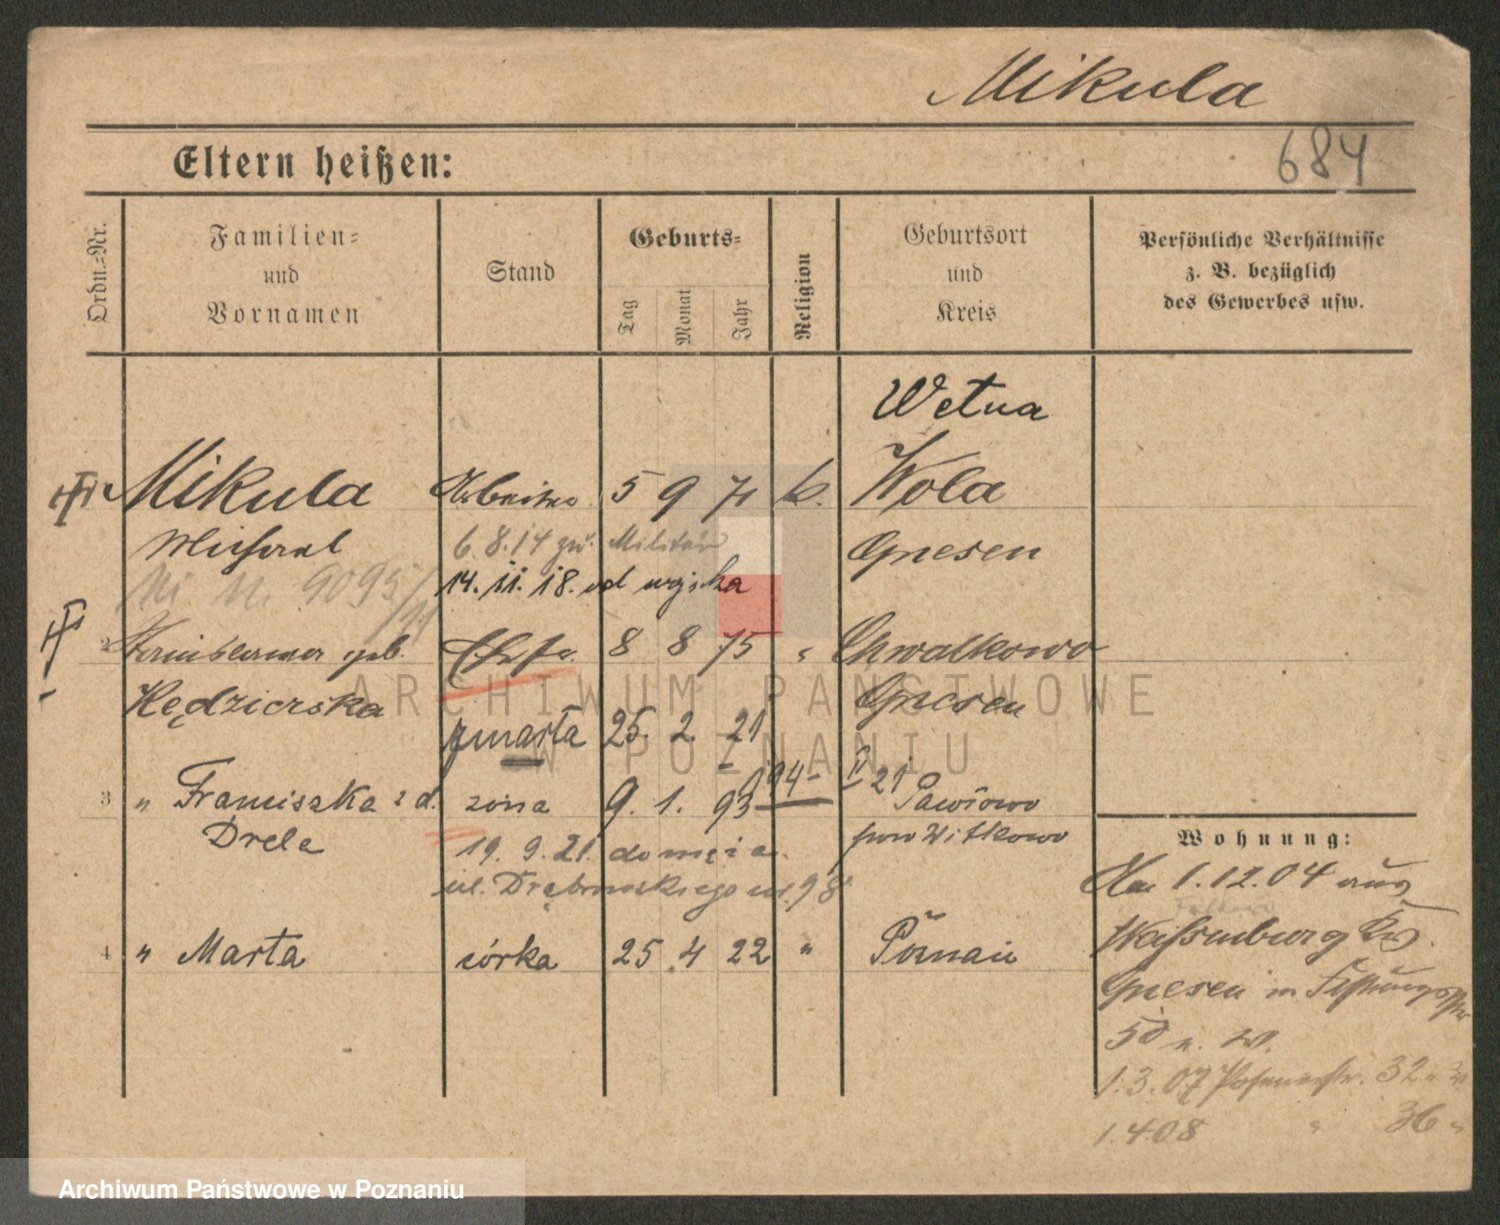 Mikula
684
Eltern heißen:
Ordn.=Nr.
Familien=
und
Vornamen
Stand
Geburts=
Tag
Monat
Jahr
Religion
Geburtsort
und
Kreis
Persönliche Verhältnisse
z. B. bezüglich
des Gewerbes usw.
Wetna
Mikula 5 9 71 k. Wola
Gnesen
6.8.14 zu Militär
14. 11. 18. od wojska
9095/11
2 geb. Ehefr. 8 8 75 " Chwalkowo
Kędzierska Gnesen
zmarła 25. 2. 21
3 " Franciszka z d. żona 9. 1. 93 94 II 21 Pawłowo
Drela pow Witkowo
19. 9. 21. do męża
ul. Dąbrowskiego 98
4 " Marta córka 25 4 22 " Poznań
Wohnung:
1.12.04 aus
Weissenburg Kr.
Gnesen in Festungsstr
50 n. W.
1.3.07 Posenerstr. 32
1.4.08 " 36 "
ARCHIWUM PAŃSTWOWE
W POZNANIU
Archiwum Państwowe w Poznaniu